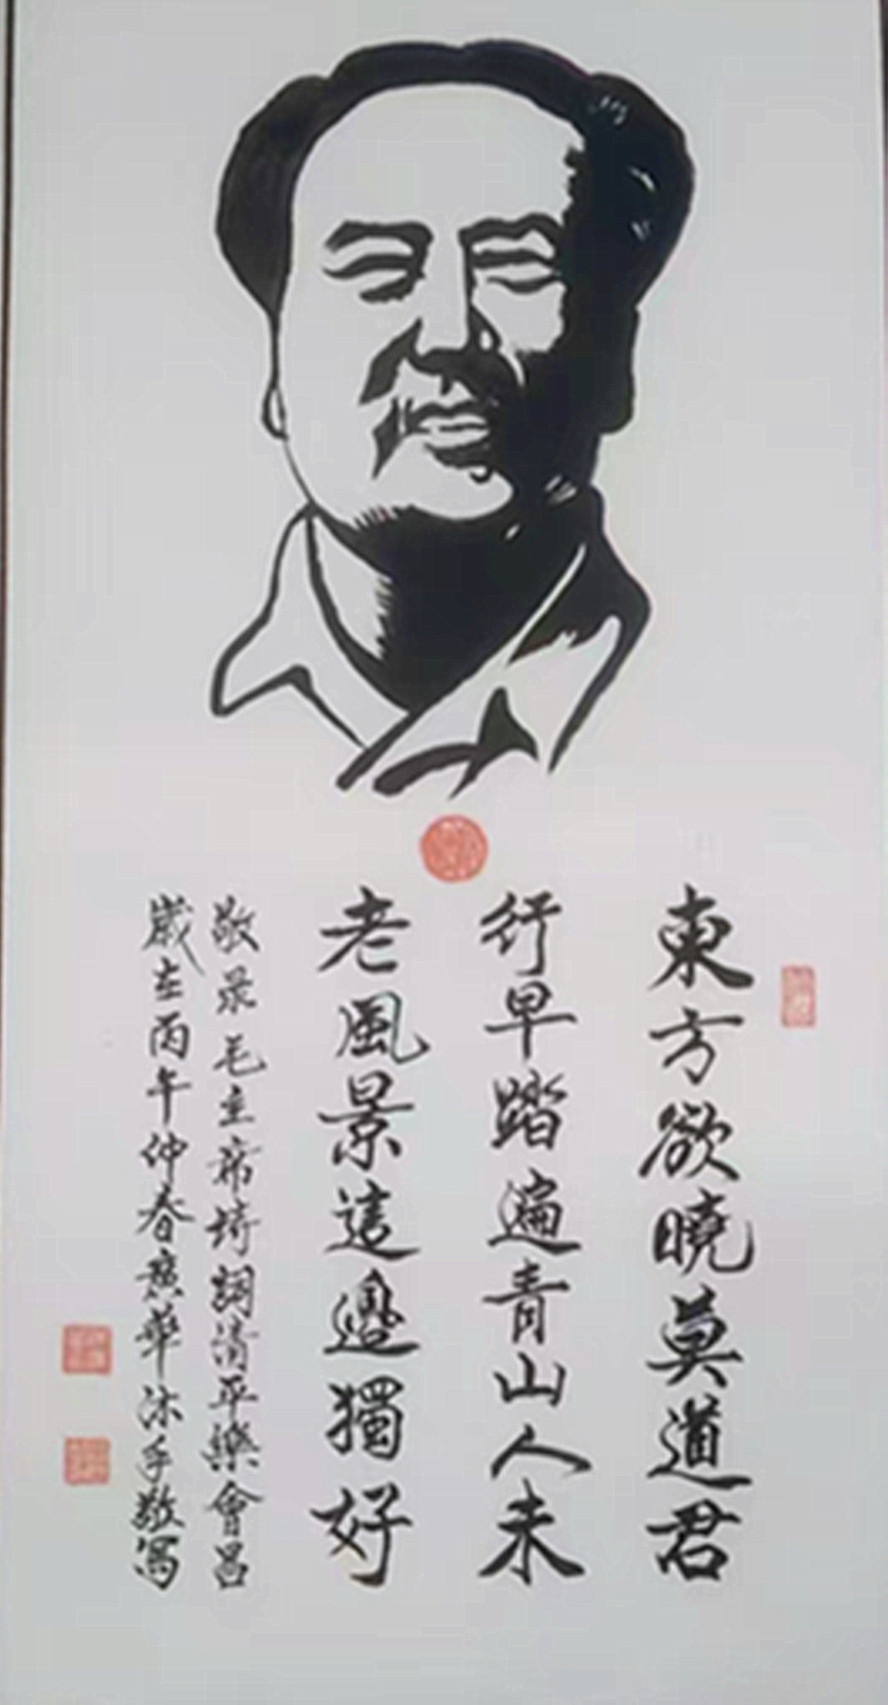 東方欲曉莫道君
行早踏遍青山人未
老風景這邊獨好
敬录毛主席诗詞清平樂會昌
歲在丙午仲春 華沐手敬寫